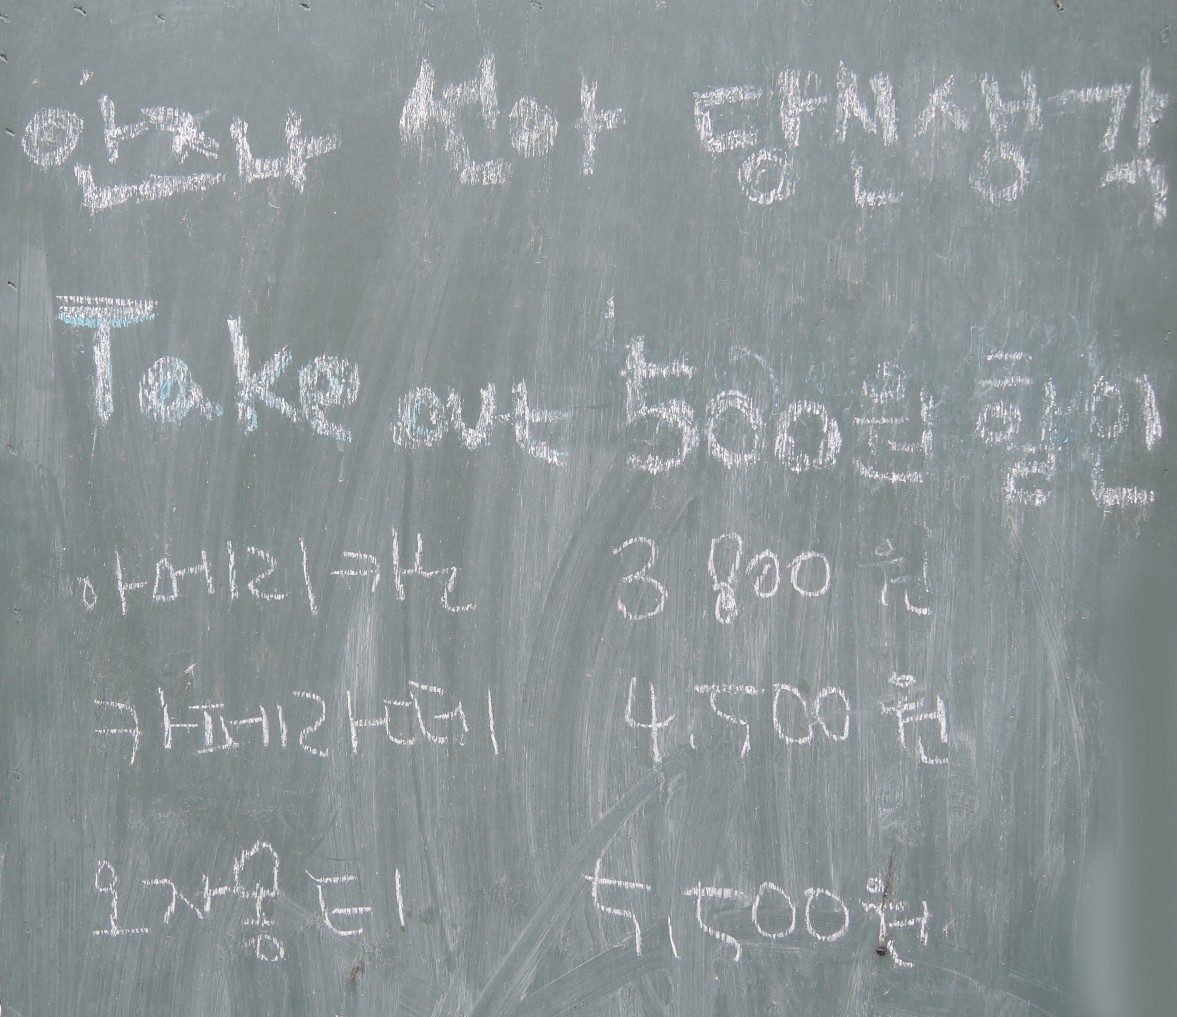 안즈나 썬아 당신생각
Take out 500원 할인
아메리칸 3800원
카페라떼 4,500원
오자몽티 5,500원